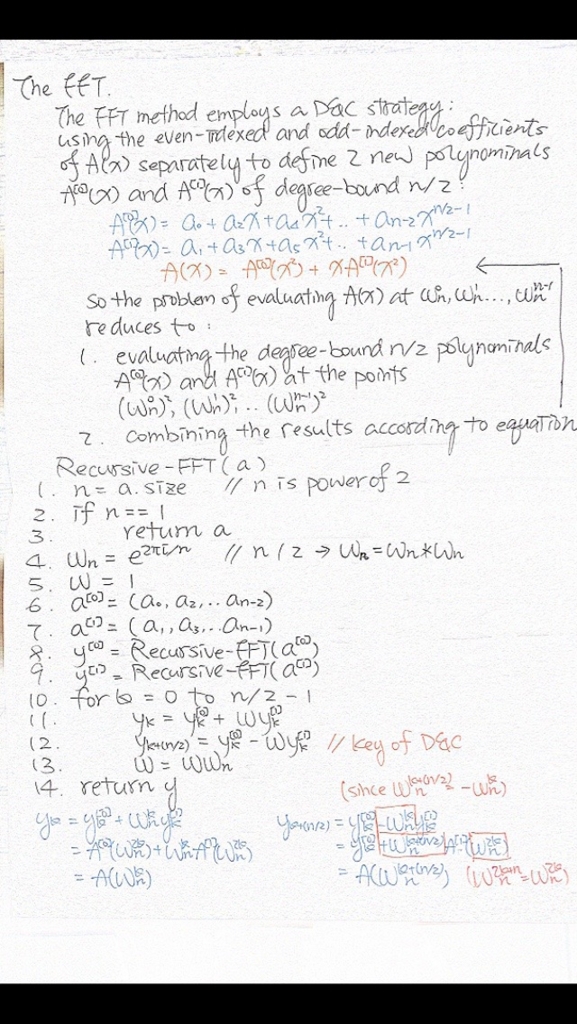 The FFT.
The FFT method employs a D&C strategy:
using the even-indexed and odd-indexed coefficients
of A(x) separately to define 2 new polynominals
A^[0](x) and A^[1](x) of degree-bound n/2:
A^[0](x) = a₀ + a₂x + a₄x² + .. + aₙ₋₂x^(n/2-1)
A^[1](x) = a₁ + a₃x + a₅x² + .. + aₙ₋₁x^(n/2-1)
A(x) = A^[0](x²) + xA^[1](x²)
So the problem of evaluating A(x) at ωₙ⁰, ωₙ¹ ..., ωₙⁿ⁻¹
reduces to:
1. evaluating the degree-bound n/2 polynominals
A^[0](x) and A^[1](x) at the points
(ωₙ⁰)², (ωₙ¹)², .. (ωₙⁿ⁻¹)²
2. combining the results according to equation
Recursive-FFT(a)
1. n = a.size // n is power of 2
2. if n == 1
3. return a
4. ωₙ = e^(2πi/n) // n/2 → ωₙ = ωₙ*ωₙ
5. ω = 1
6. a^[0] = (a₀, a₂, .. aₙ₋₂)
7. a^[1] = (a₁, a₃, .. aₙ₋₁)
8. y^[0] = Recursive-FFT(a^[0])
9. y^[1] = Recursive-FFT(a^[1])
10. for k = 0 to n/2 - 1
11. yₖ = yₖ^[0] + ωyₖ^[1]
12. yₖ₊₍ₙ/₂₎ = yₖ^[0] - ωyₖ^[1] // key of D&C
13. ω = ωωₙ
14. return y (since ωₙ^(k+(n/2)) = -ωₙᵏ)
yₖ = yₖ^[0] + ωₙᵏyₖ^[1] yₖ₊₍ₙ/₂₎ = yₖ^[0] - ωₙᵏyₖ^[1]
= A^[0](ωₙ²ᵏ) + ωₙᵏA^[1](ωₙ²ᵏ) = yₖ^[0] + ωₙ^(k+(n/2))A^[1](ωₙ²ᵏ)
= A(ωₙᵏ) = A(ωₙ^(k+(n/2))) (ωₙ²ᵏ⁺ⁿ = ωₙ²ᵏ)